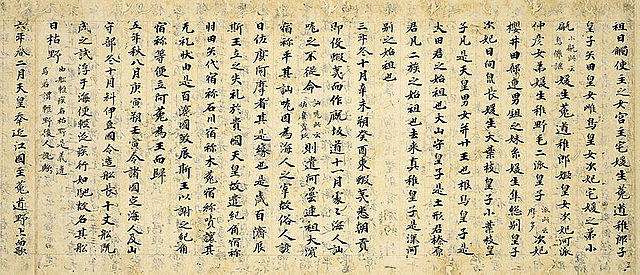 祖日觸使主之女宮主宅媛生菟道稚郎子
皇子矢田皇女雌鳥皇女次妃宅媛之弟小
甂媛生菟道稚郎姬皇女次妃河派
仲彦女弟媛生稚野毛二派皇子 次妃
櫻井田部連男鉏之妹糸媛生隼総別皇子
次妃日向泉長媛生大葉枝皇子小葉枝皇
子凡是天皇男女并廿王也根鳥皇子是
大田君之始祖也大山守皇子是土形君榛原
君凡二族之始祖也去來真稚皇子是深河
別之始祖也
三年冬十月辛未朔癸酉東蝦夷悉朝貢
即役蝦夷而作厩坂道十一月處々海人訕
哤之不從命 訕哤此云 則遣阿曇連祖大濱
宿祢平其訕哤因為海人之宰故俗人諺
曰佐麼阿摩者其是緣也是歲百濟辰
斯王立之失礼於貴國天皇故遣紀角宿祢
羽田矢代宿祢石川宿祢木菟宿祢嘖讓其
无礼狀由是百濟國殺辰斯王以謝之紀角
宿祢等便立阿花為王而歸
五年秋八月庚寅朔壬寅令諸國定海人及山
守部冬十月科伊豆國令造船長十丈船既
成之試浮于海便輕泛疾行如馳故名其船
曰枯野 由船輕疾名枯野是義違
焉若謂輕野後人訛歟
六年春二月天皇幸近江國至菟道野上而歌